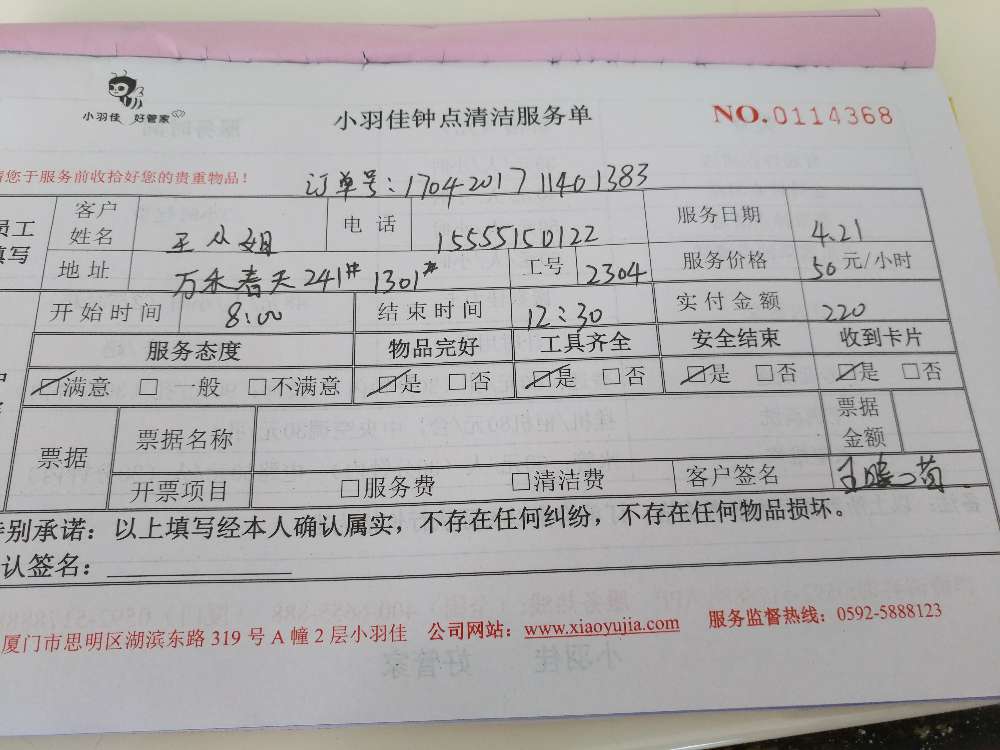 小羽佳 好管家
小羽佳钟点清洁服务单
NO.0114368
请您于服务前收拾好您的贵重物品!
订单号:1704201711401383
员工填写
客户姓名 王 姐 电话 15555150122 服务日期 4.21
地址 万禾春天241# 1301# 工号 2304 服务价格 50元/小时
开始时间 8:00 结束时间 12:30 实付金额 220
服务态度 物品完好 工具齐全 安全结束 收到卡片
☑满意 □ 一般 □不满意 ☑是 □否 ☑是 □否 ☑是 □否 ☑是 □否
票据 票据名称 票据金额
开票项目 □服务费 □清洁费 客户签名 王
特别承诺:以上填写经本人确认属实,不存在任何纠纷,不存在任何物品损坏。
认签名:
厦门市思明区湖滨东路 319 号 A 幢 2 层小羽佳 公司网站:www.xiaoyujia.com 服务监督热线:0592-5888123